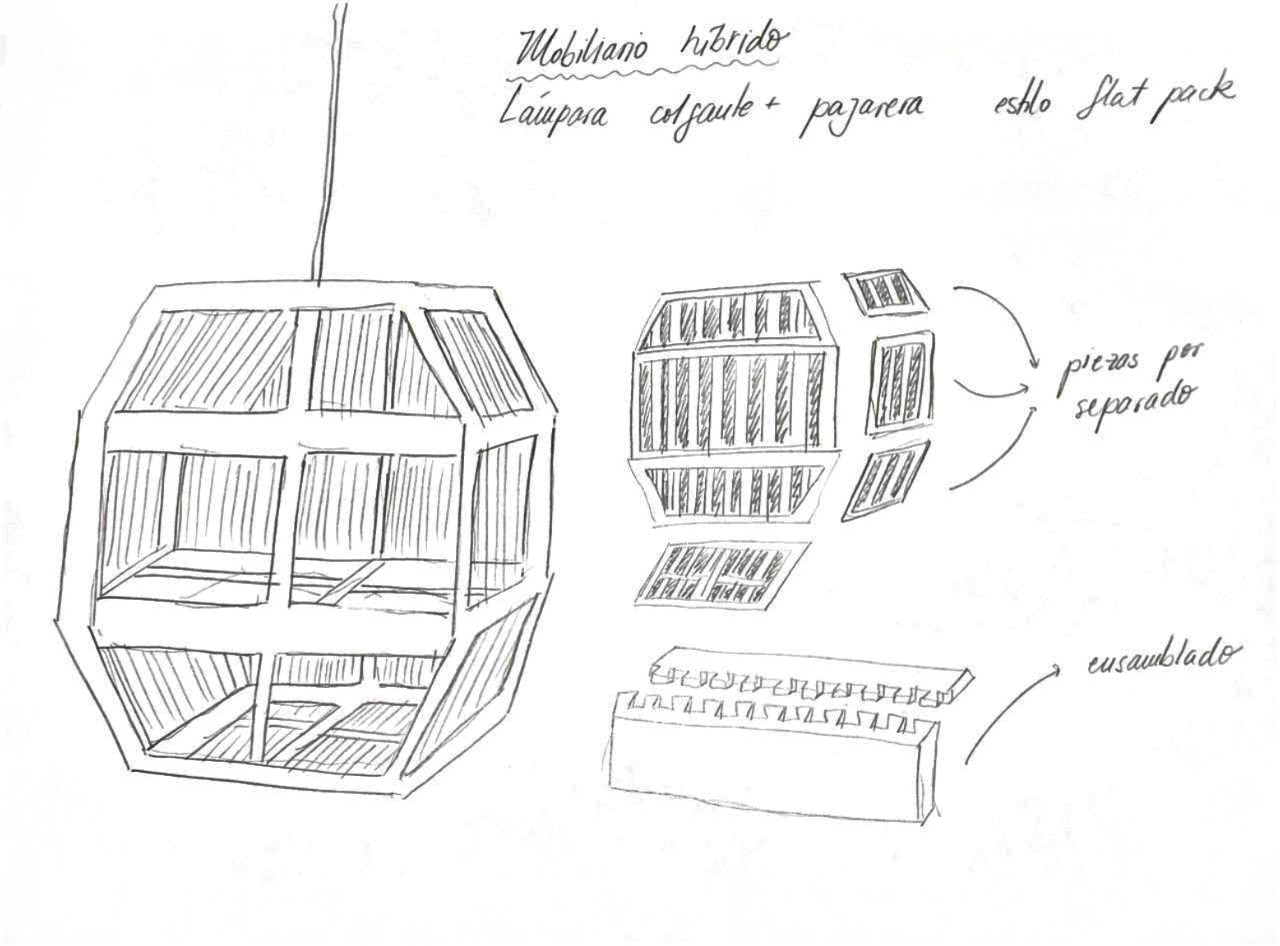 Mobiliario híbrido
Lámpara colgante + pajarera estilo flat pack
piezas por
separado
ensamblado